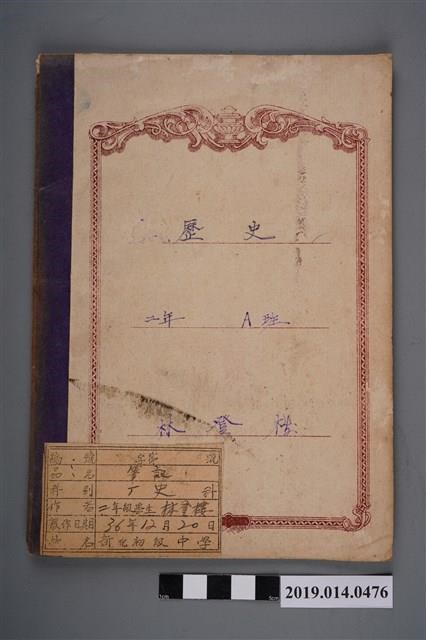 歷史
二年 A班
林登
編號 字第 號
品名 筆記
科別 丁史 科
作者 二年級學生 林登樑
製作日期 36年12月20日
校名 新化初級中學
2019.014.0476